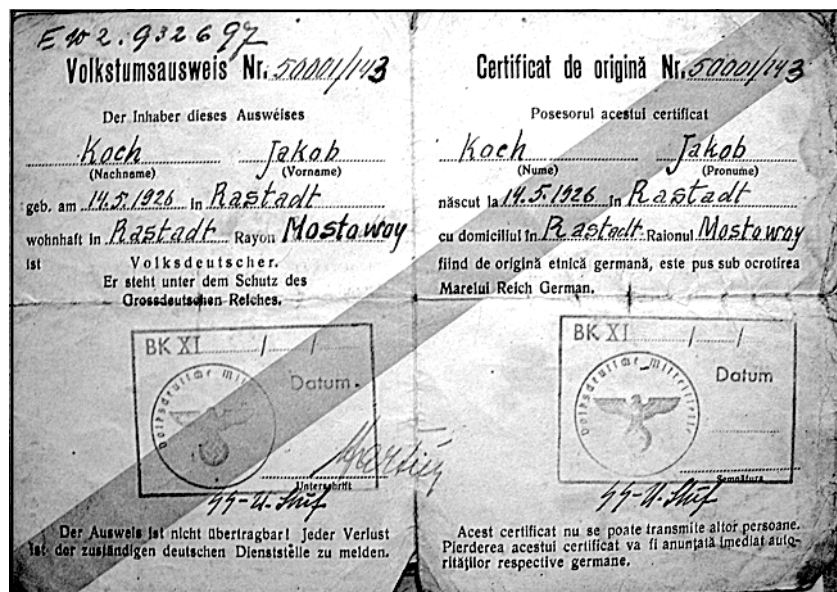 EW 2.932697
Volkstumsausweis Nr. 50001/143
Der Inhaber dieses Ausweises
Koch Jakob
(Nachname) (Vorname)
geb. am 14.5.1926 in Rastadt
wohnhaft in Rastadt Rayon Mostoway
ist Volksdeutscher.
Er steht unter dem Schutz des
Grossdeutschen Reiches.
BK XI / /
Datum.
Volksdeutsche Mittelstelle
Unterschrift
SS-U.Stuf
Der Ausweis ist nicht übertragbar! Jeder Verlust
ist der zuständigen deutschen Dienststelle zu melden.
Certificat de origină Nr. 50001/143
Posesorul acestui certificat
Koch Jakob
(Nume) (Pronume)
născut la 14.5.1926 în Rastadt
cu domiciliul în Rastadt Raionul Mostoway
fiind de origină etnică germană, este pus sub ocrotirea
Marelui Reich German.
BK XI / /
Datum
Volksdeutsche Mittelstelle
Semnătura
SS-U.Stuf
Acest certificat nu se poate transmite altor persoane.
Pierderea acestui certificat va fi anunțată imediat auto-
rităților respective germane.